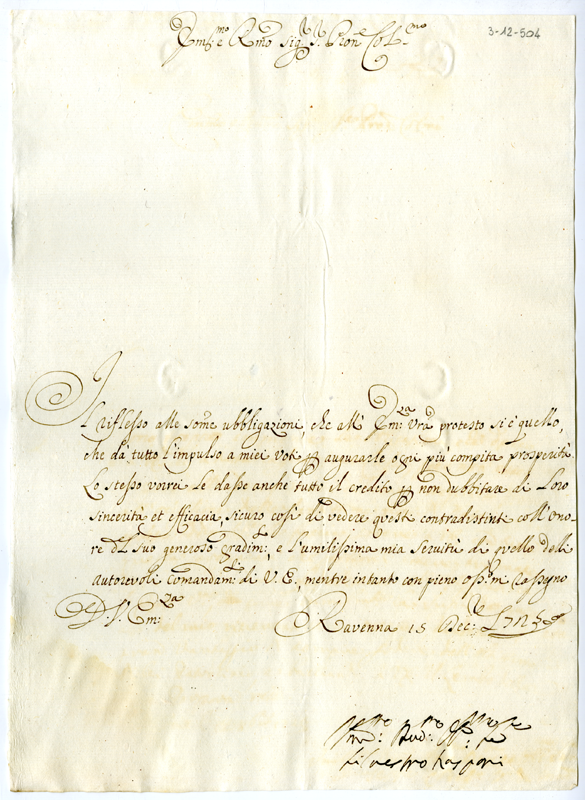 3-12-504
Em:mo e Rmo Sig.r Sig.r Pron.e Col.mo
Il riflesso alle som̃e ubbligazioni, che all' Em:za Vrã protesto si è quello,
che dà tutto l'impulso a miei voti p augurarle ogni più compita prosperità
Lo stesso vorrei le dasse anche tutto il credito p non dubbitare di loro
sincerità et efficacia, sicuro così di vedere queste contradistinte coll'ono
re del suo generoso gradim:to, e l'umilissima mia servitù di quello delli
autorevoli comandam:ti di V. E., mentre intanto con pieno oss:o m rassegno
D. V. Em:za
Ravenna 15 Dec:
Silvestro Rasponi